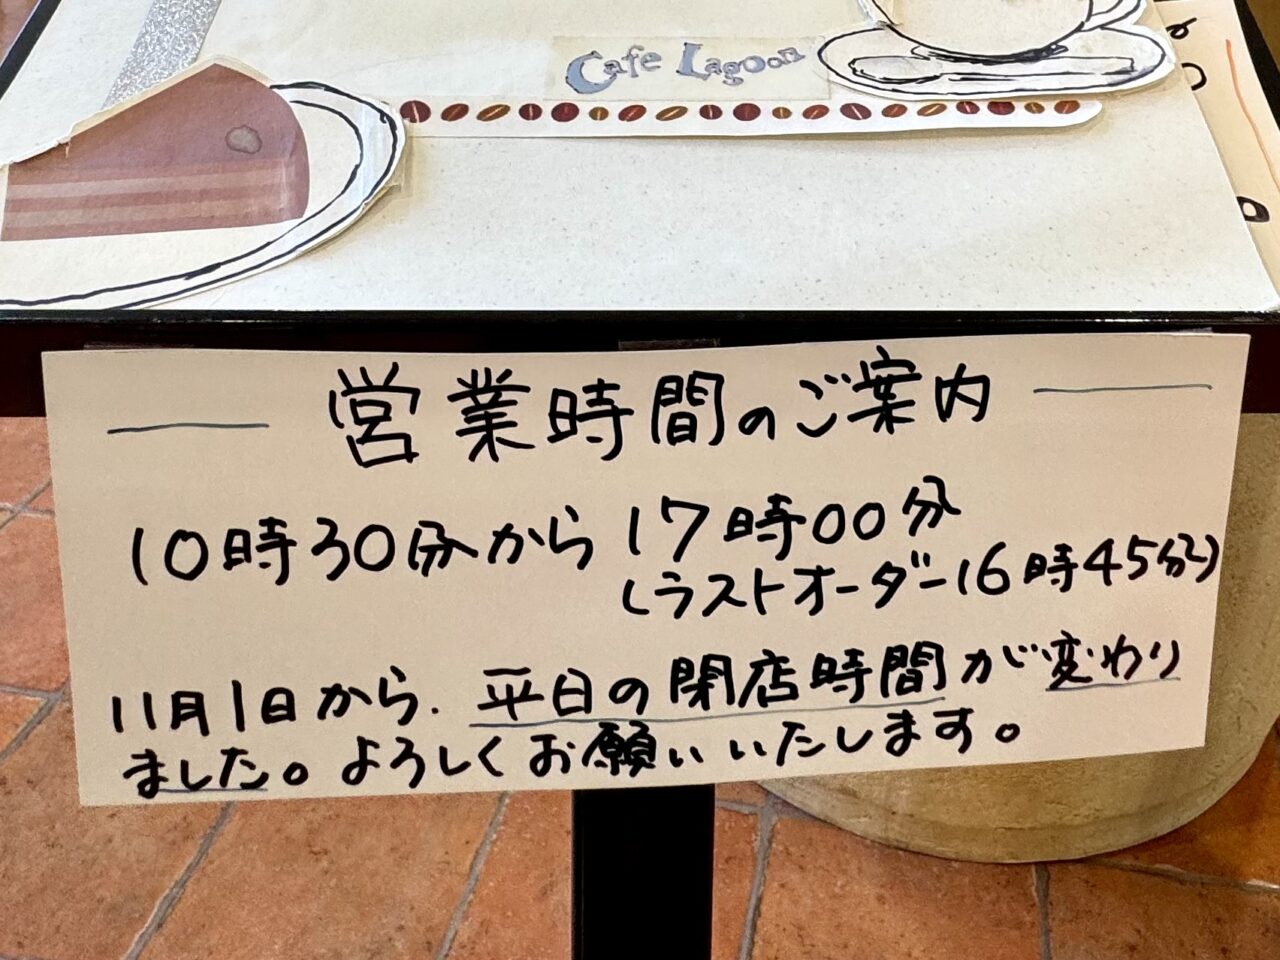 Cafe Lagoon
営業時間のご案内
10時30分から17時00分
(ラストオーダー16時45分)
11月1日から、平日の閉店時間が変わり
ました。よろしくお願いいたします。